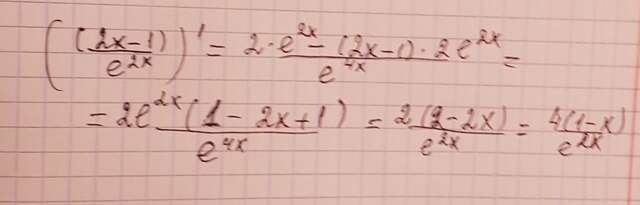 ((2x-1)/e^{2x})' = (2·e^{2x} - (2x-1)·2e^{2x})/e^{4x} =
= 2e^{2x}(1-2x+1)/e^{4x} = 2(2-2x)/e^{2x} = 4(1-x)/e^{2x}